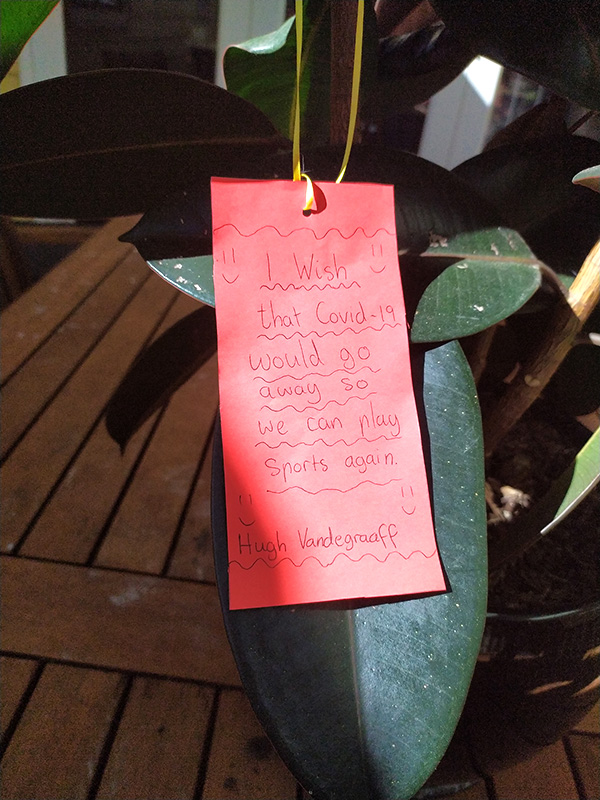 I Wish
that Covid-19
would go
away so
we can play
Sports again.
Hugh Vandegraaff